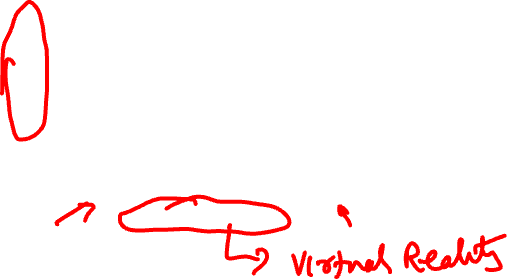 Virtual Reality